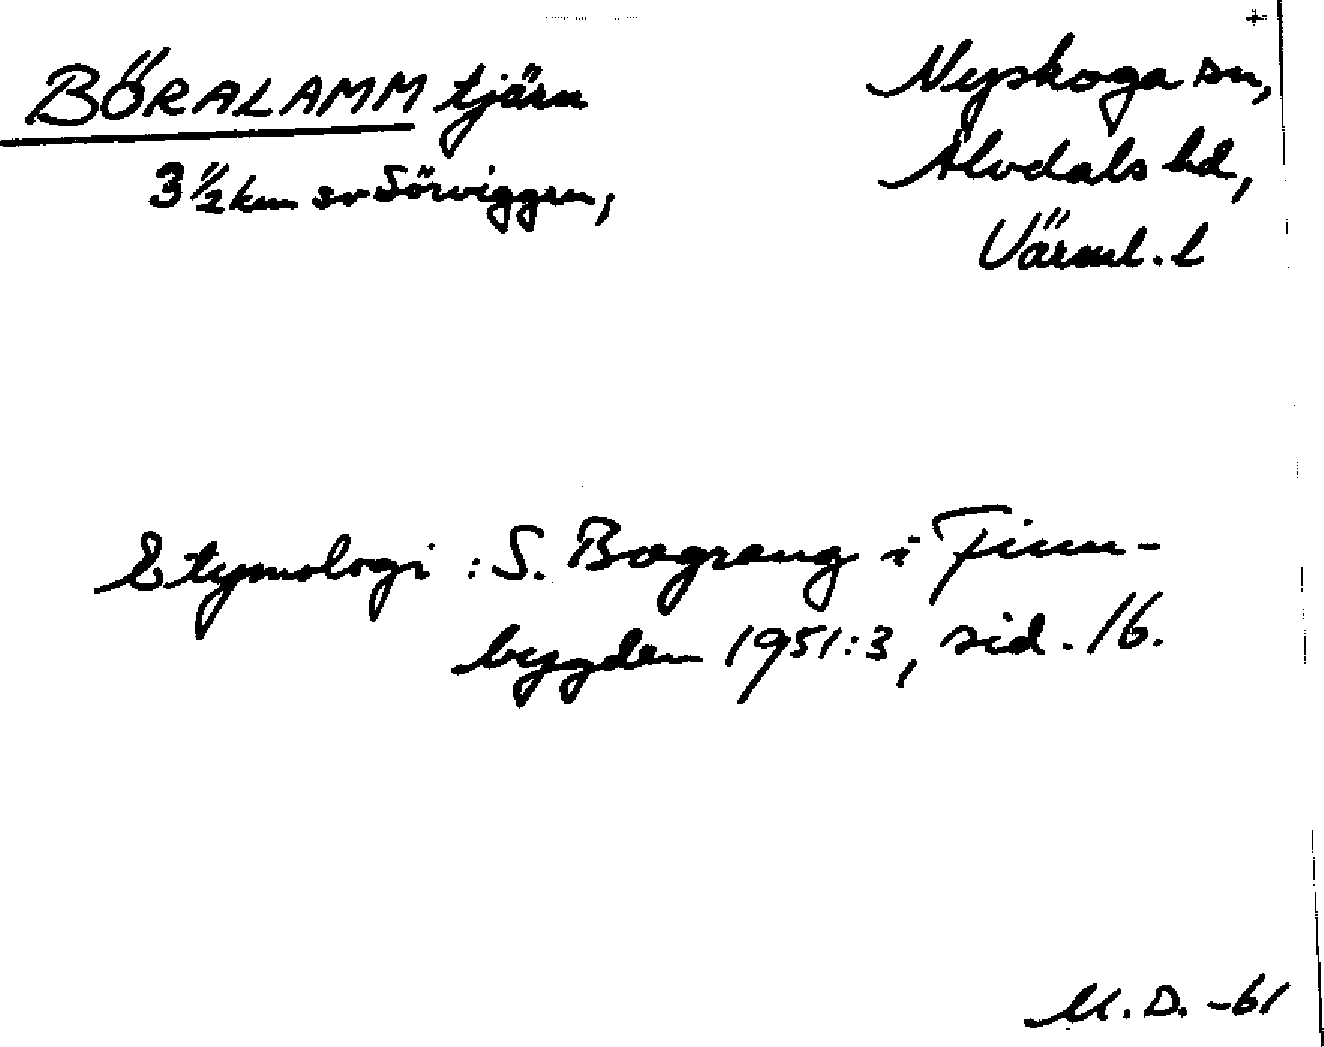 BÖRALAMM tjärn
3 1/2 km sv Sörviggen,
Nyskoga sn,
Älvdals hd,
Värml. l
Etymologi : S. Bograng i Finn-
bygden 1951:3, sid. 16.
M. D. -61